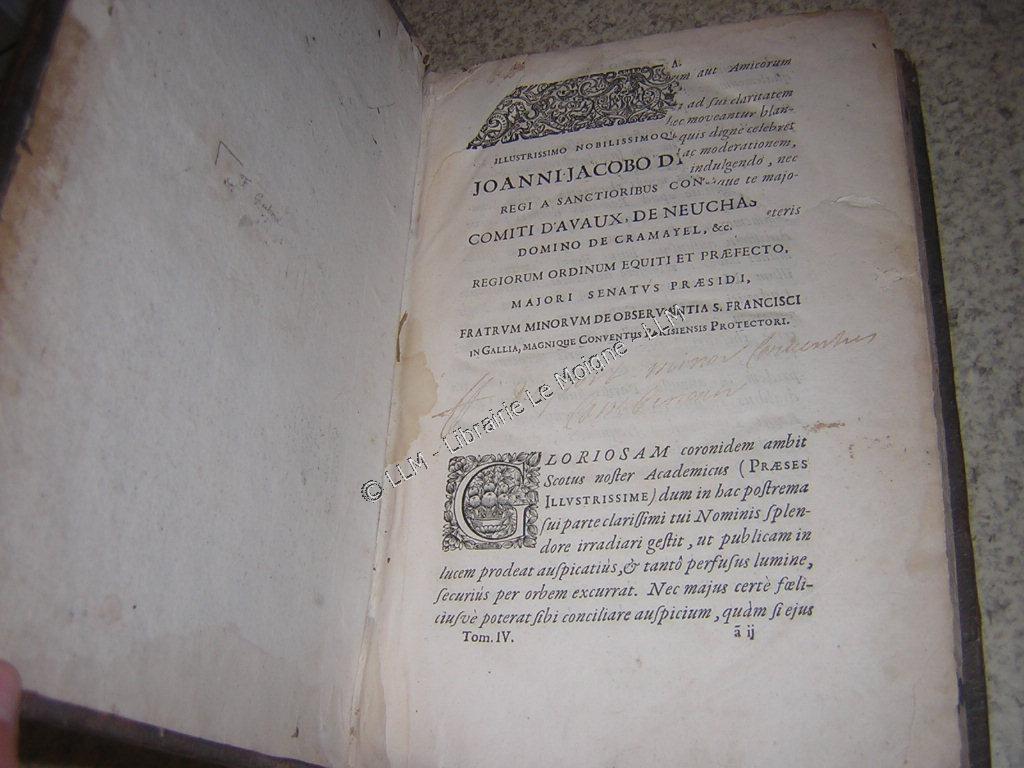 A.
rum aut Amicorum
ad sui claritatem
hec moveantur blan-
quis dignè celebret
ac moderationem,
indulgendo, nec
que te majo-
eteris
ILLUSTRISSIMO NOBILISSIMOQU
JOANNI·JACOBO D
REGI A SANCTIORIBUS CON
COMITI D'AVAUX, DE NEUCHAS
DOMINO DE CRAMAYEL, &c.
REGIORUM ORDINUM EQUITI ET PRÆFECTO,
MAJORI SENATVS PRÆSIDI,
FRATRVM MINORVM DE OBSERVANTIA S. FRANCISCI
IN GALLIA, MAGNIQUE CONVENTUS PARISIENSIS PROTECTORI.
minor Conventus
© LLM - Librairie Le Moigne - LLM
GLORIOSAM coronidem ambit
Scotus noster Academicus (PRÆSES
ILLVSTRISSIME) dum in hac postrema
sui parte clarissimi tui Nominis splen-
dore irradiari gestit, ut publicam in
lucem prodeat auspicatiùs, & tantô perfusus lumine,
securiùs per orbem excurrat. Nec majus certè fœli-
ciusvè poterat sibi conciliare auspicium, quàm si ejus
Tom. IV. ã ij